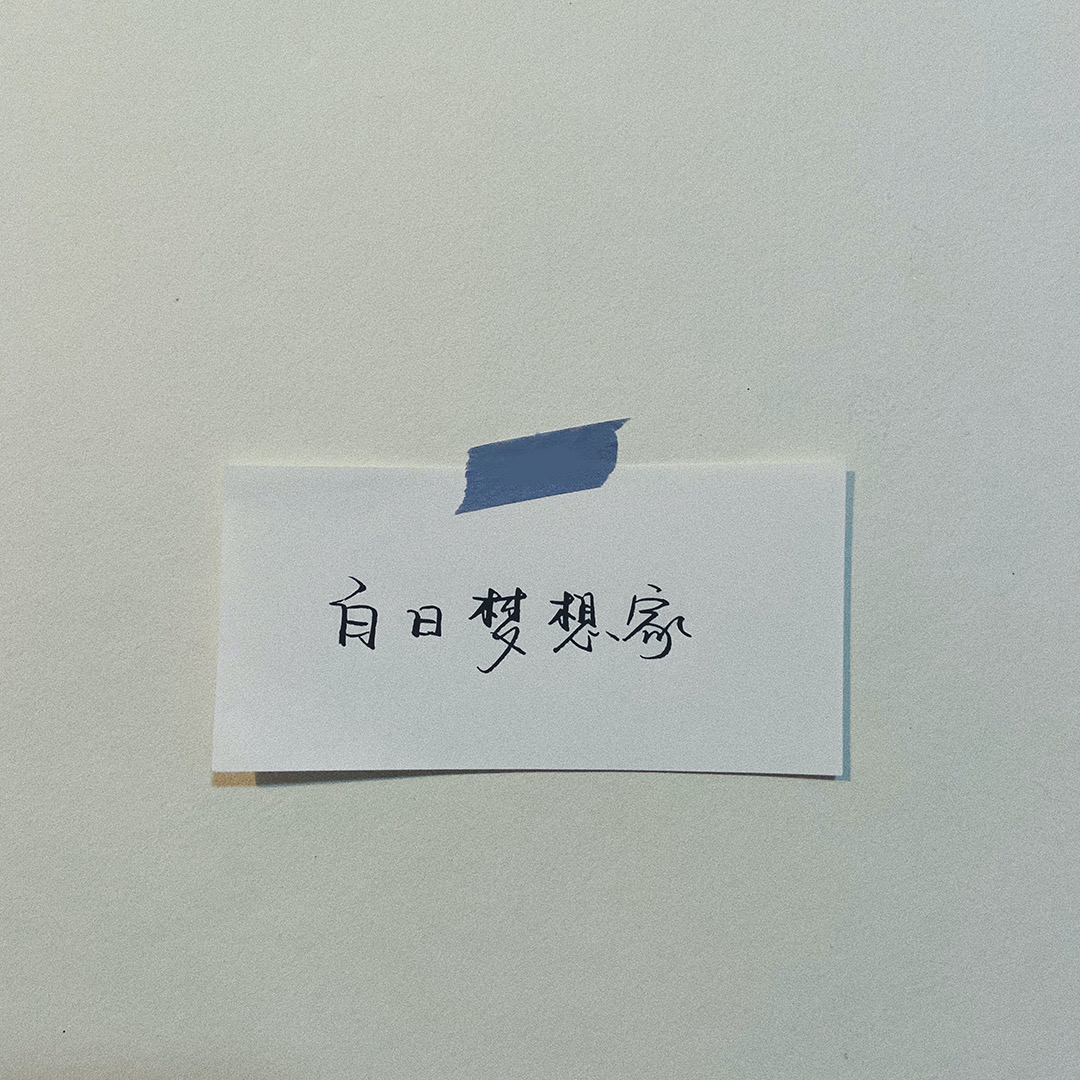 白日梦想家